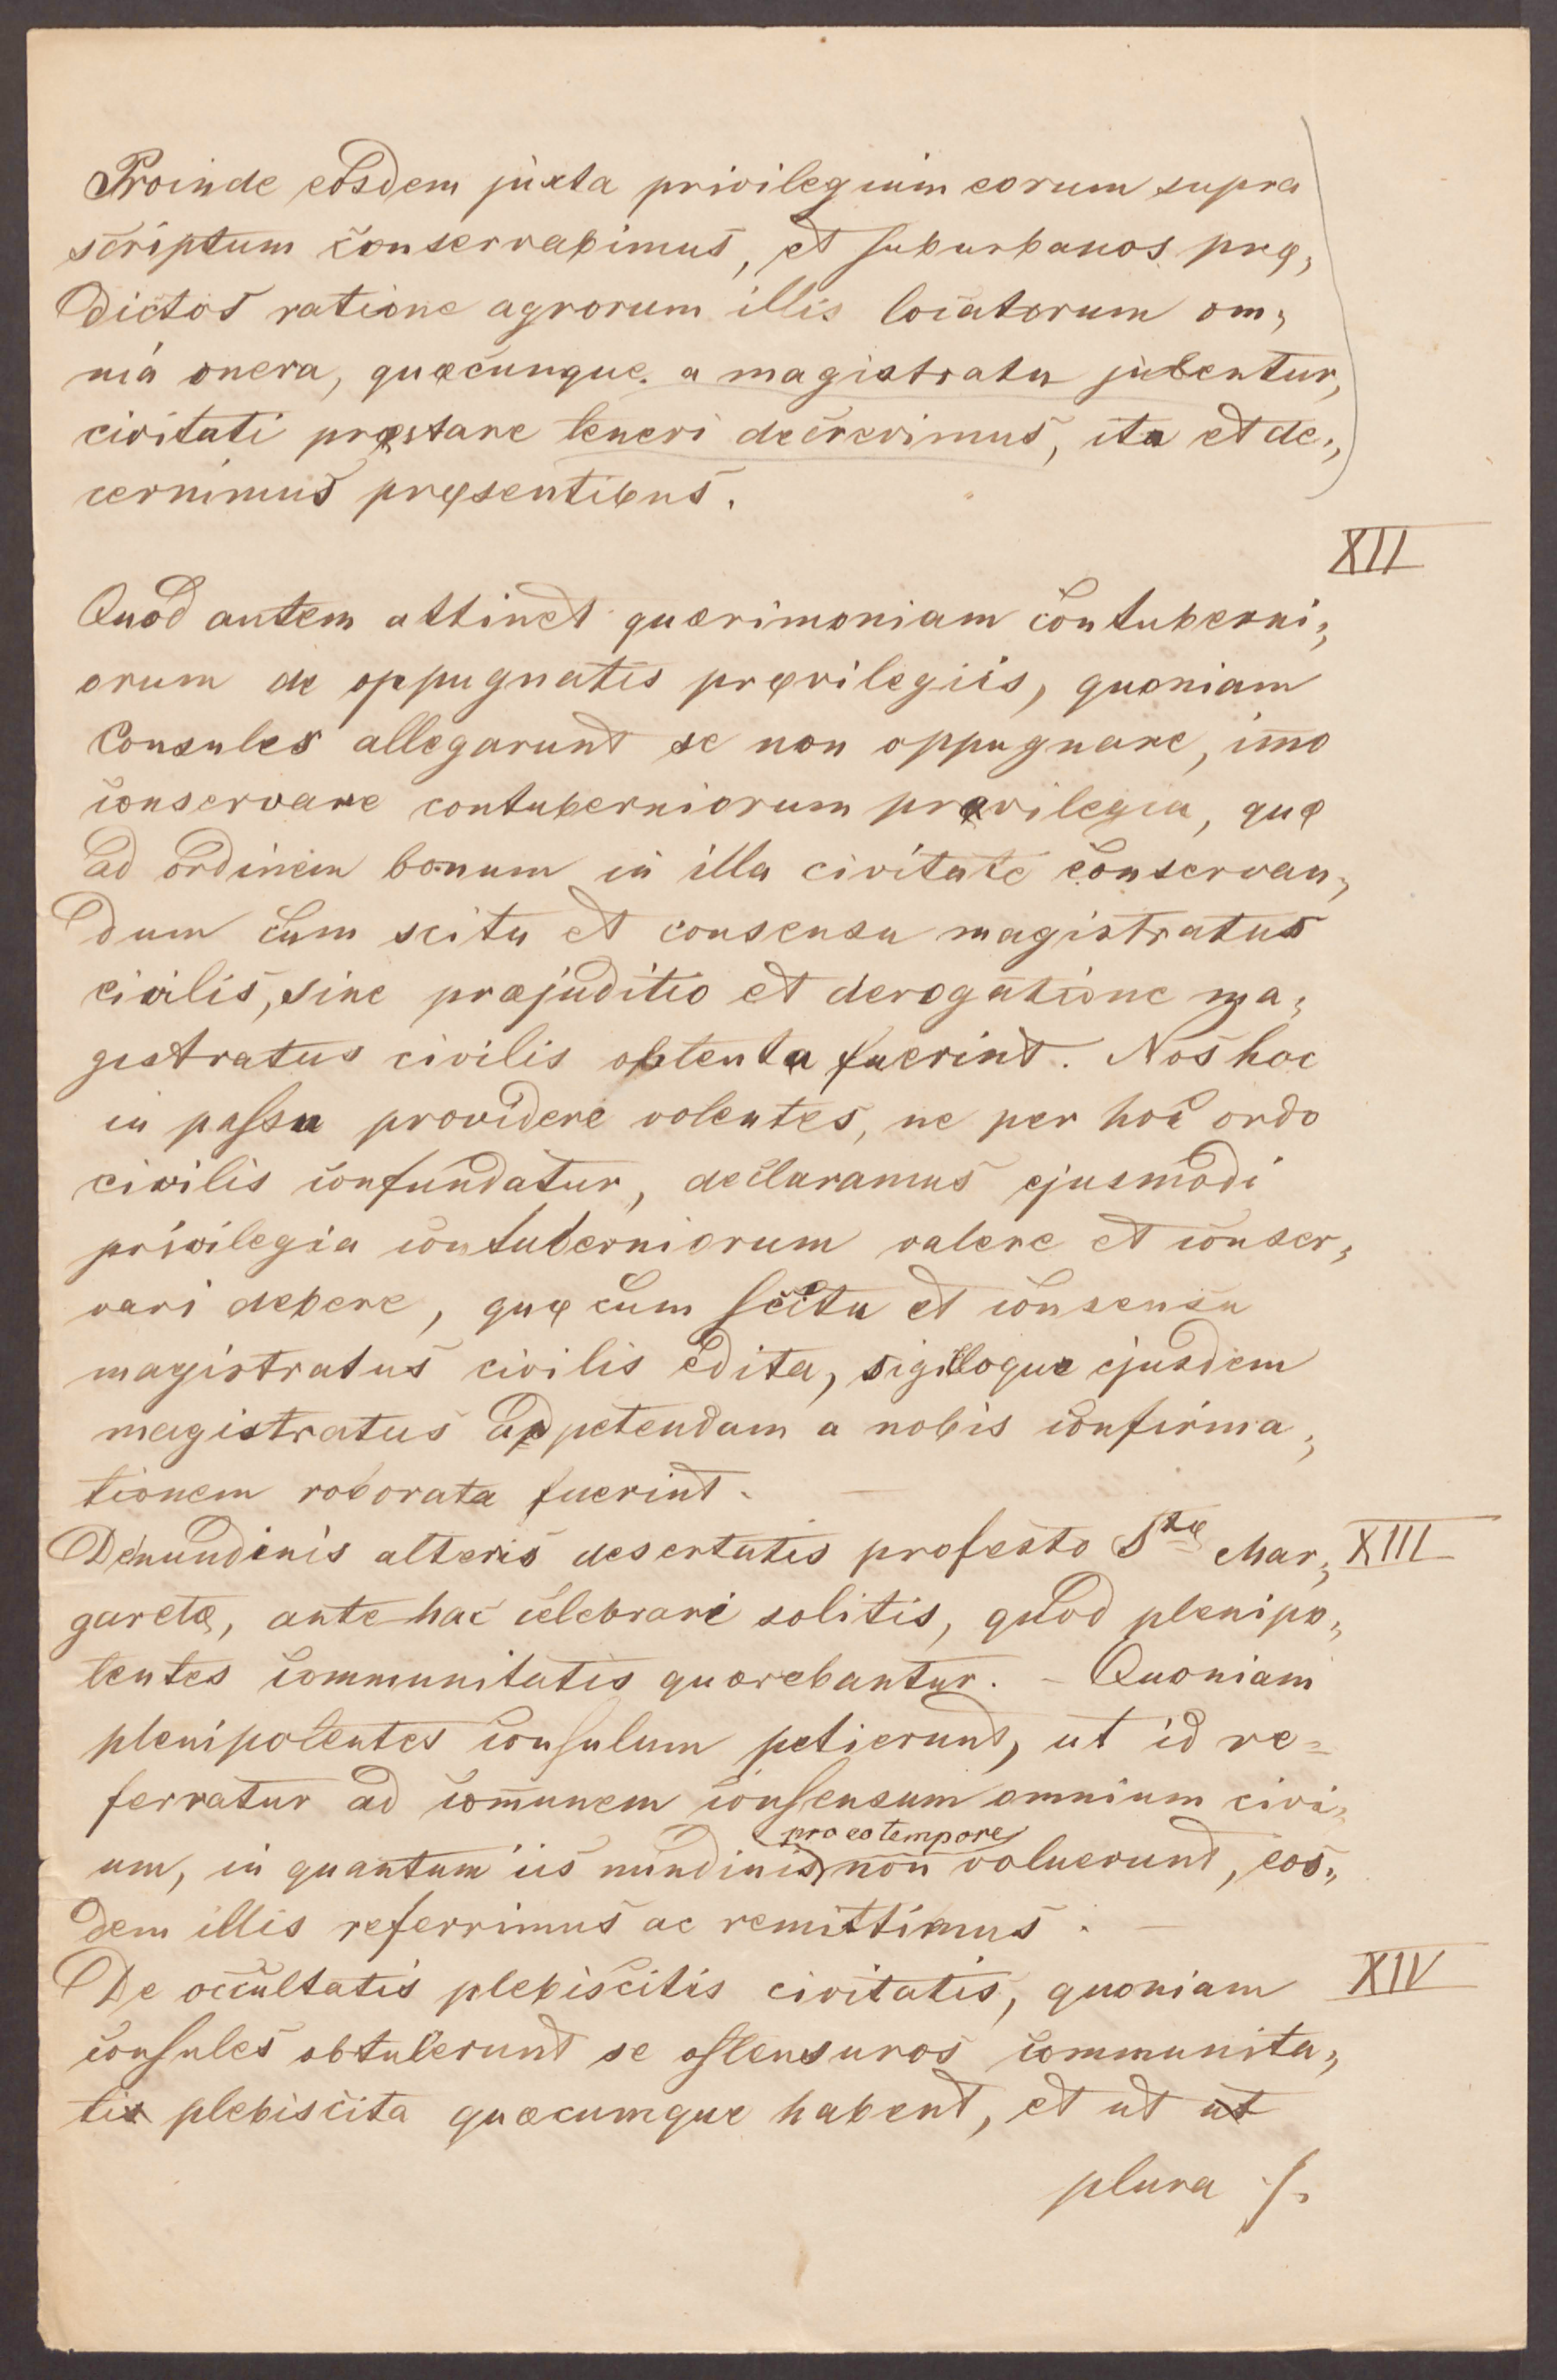 Proinde eosdem juxta privilegium eorum supra
scriptum conservabimus, et suburbanos prę„
dictos ratione agrorum illis locatorum om„
nia onera, quæcunque a magistratu jubentur,
civitati pręstare teneri decrevimus, ita et de„
cernimus pręsentibus.
XII
Quod autem attinet quærimoniam contuberni„
orum de oppugnatis pręvilegiis, quoniam
Consules allegarunt se non oppugnare, im̄o
conservare contuberniorum prævilegia, quę
ad ordinem bonum in illa civitate conservan„
dum cum scitu et consensu magistratus
civilis, sine præjuditio et derogatione ma„
gistratus civilis obtenta fuerint. Nos hoc
in passu providere volentes, ne per hoc ordo
civilis confundatur, declaramus ejusmodi
privilegia contuberniorum valere et conser„
vari debere, quę cum scitu et consensu
magistratus civilis edita, sigilloque ejusdem
magistratus ad petendam a nobis confirma„
tionem roborata fuerint. —
De nundinis alteris desertatis profesto Stę Mar„ XIII
garetæ, antehac celebrari solitis, quod plenipo„
tentes communitatis quærebantur. – Quoniam
plenipotentes consulum petierunt, ut id re=
ferratur ad com̄unem consensum omnium civi„
pro eo tempore
um, in quantum iis nundinis non voluerunt, eos„
dem illis referrimus ac remittimus. —
De occultatis plebiscitis civitatis, quoniam XIV
consules obtulerunt se ostensuros communita„
tis plebiscita quæcumque habent, et ut ut
plura ./.